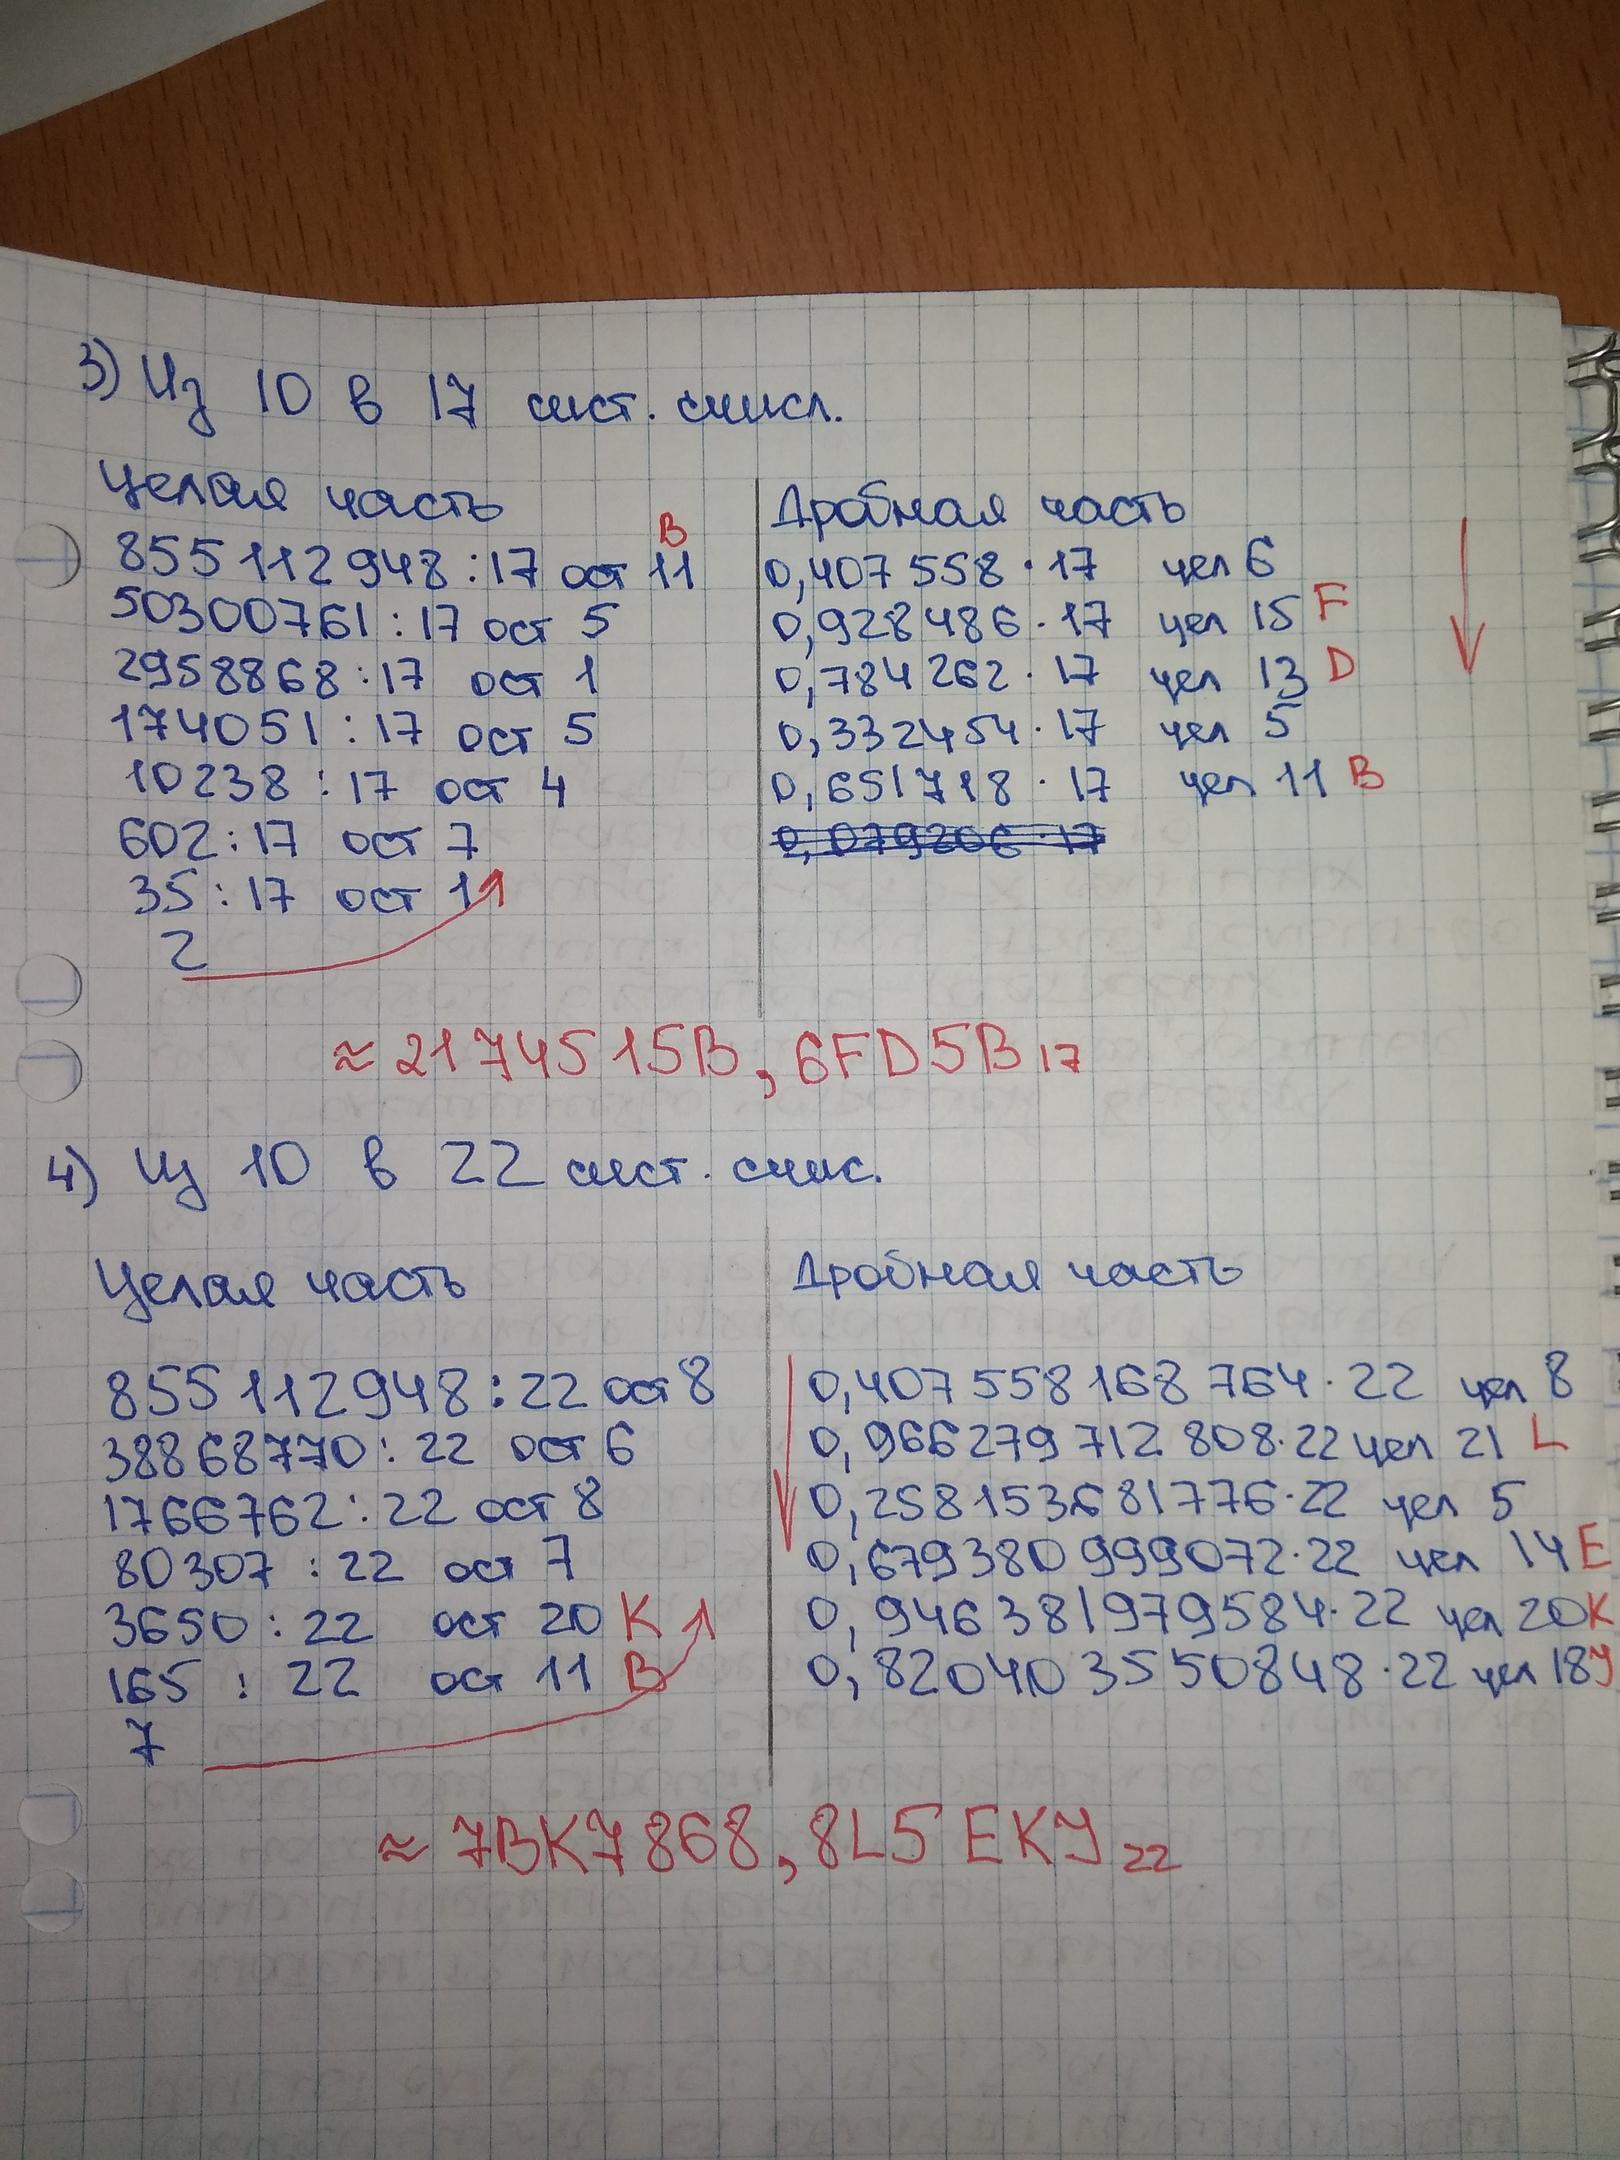 3) Из 10 в 17 сист. счисл.
Целая часть
855112948:17 ост 11 B
50300761:17 ост 5
2958868:17 ост 1
174051:17 ост 5
10238:17 ост 4
602:17 ост 7
35:17 ост 1
2
Дробная часть
0,407558·17 цел 6
0,928486·17 цел 15 F
0,784262·17 цел 13 D
0,332454·17 цел 5
0,651718·17 цел 11 B
≈2174515B,6FD5B17
4) Из 10 в 22 сист. счис.
Целая часть
855112948:22 ост 8
38868770:22 ост 6
1766762:22 ост 8
80307:22 ост 7
3650:22 ост 20 K
165:22 ост 11 B
7
Дробная часть
0,407558168764·22 цел 8
0,966279712808·22 цел 21 L
0,258153681776·22 цел 5
0,679380999072·22 цел 14 E
0,946381979584·22 цел 20 K
0,820403550848·22 цел 18 У
≈7BK7868,8L5EKУ22